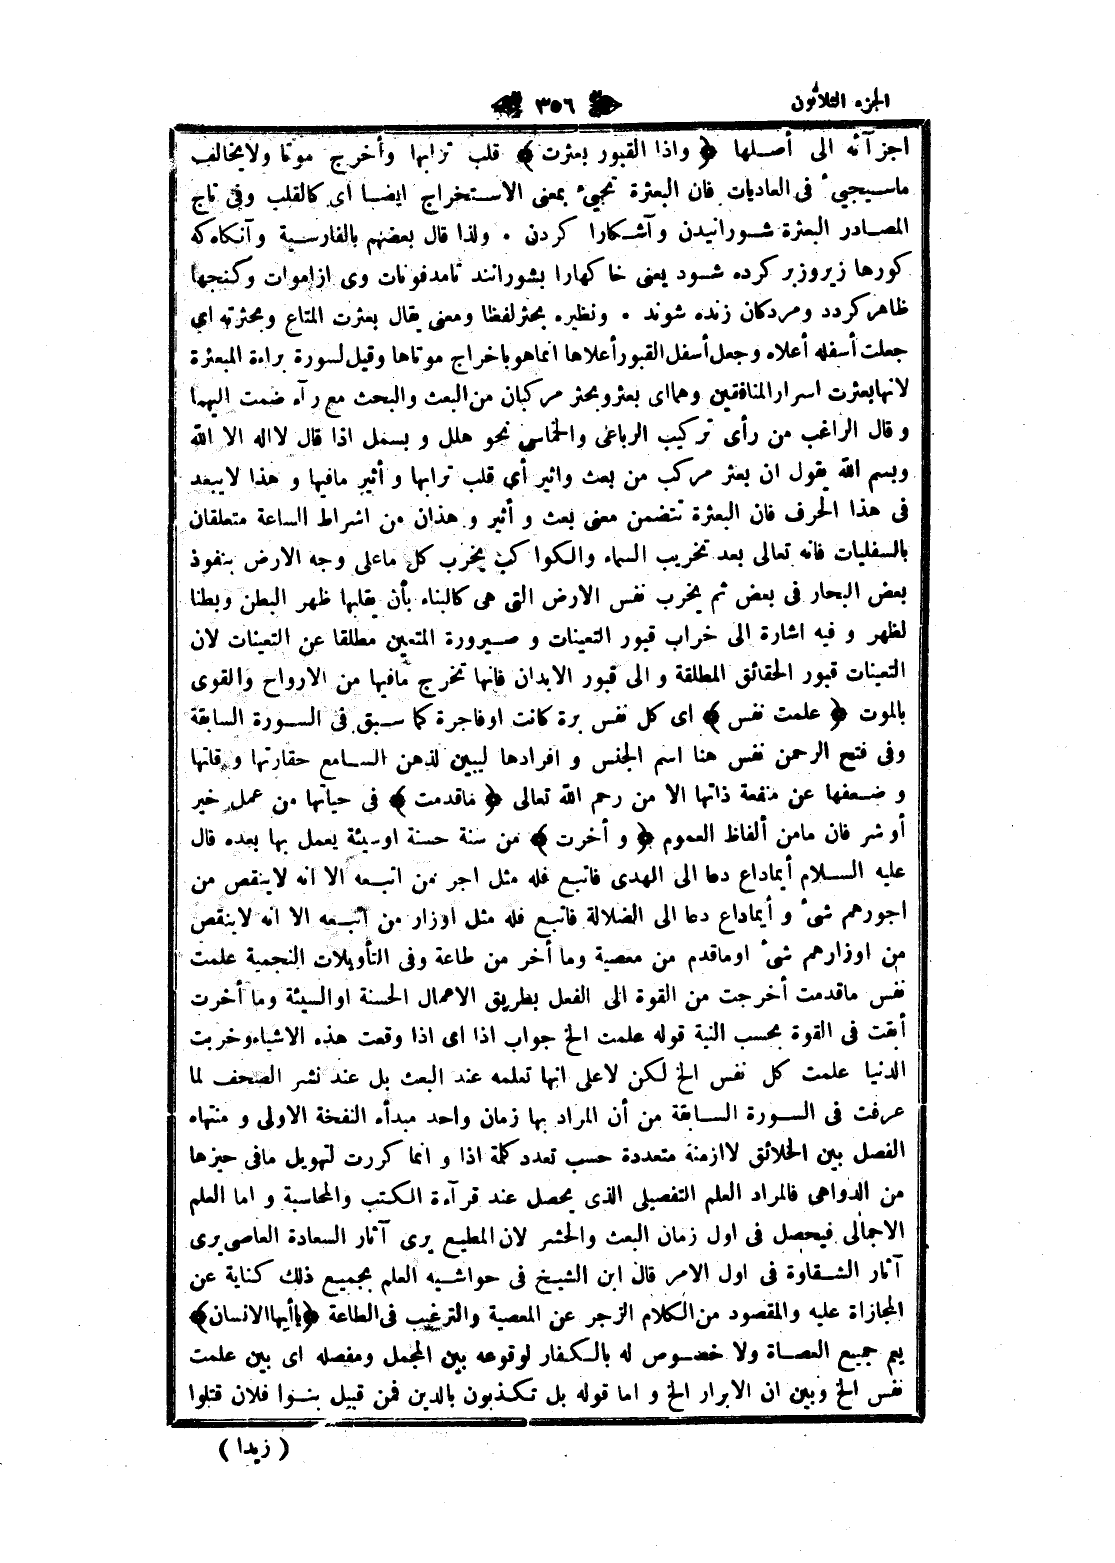 الجزء الثلاثون
٣٥٦
اجزآئه الى أصلها ﴿ واذا القبور بعثرت ﴾ قلب ترابها وأخرج موتا ولايخالف
ماسيجيئ فى العاديات فان البعثرة تجيئ بمعنى الاستخراج ايضا اى كالقلب وفى تاج
المصادر البعثرة شورانيدن وآشكارا كردن . ولذا قال بعضهم بالفارسية وآنكاه كه
كورها زيروزبر كرده شود يعنى خاكهارا بشورانند تامدفونات وى ازاموات وكنجها
ظاهر كردد ومردكان زنده شوند . ونظيره بحثر لفظا ومعنى يقال بعثرت المتاع وبحثرته اي
جعلت أسفله أعلاه وجعل أسفل القبور أعلاها انماهو باخراج موتاها وقيل لسورة براءة المبعثرة
لانها بعثرت اسرار المنافقين وهمااى بعثر وبحثر مركبان من البعث والبحث مع رآء ضمت اليهما
وقال الراغب من رأى تركيب الرباعى والخماسى نحو هلل و بسمل اذا قال لااله الا الله
وبسم الله يقول ان بعثر مركب من بعث واثير أي قلب ترابها و أثير مافيها و هذا لايبعد
فى هذا الحرف فان البعثرة تتضمن معنى بعث و أثير و هذان من اشراط الساعة متعلقان
بالسفليات فانه تعالى بعد تخريب السماء والكواكب يخرب كل ماعلى وجه الارض بنفوذ
بعض البحار فى بعض ثم يخرب نفس الارض التى هى كالبناء بأن يقلبها ظهر البطن وبطنا
لظهر و فيه اشارة الى خراب قبور التعينات و صيرورة المتعين مطلقا عن التعينات لان
التعينات قبور الحقائق المطلقة و الى قبور الابدان فانها تخرج مافيها من الارواح والقوى
بالموت ﴿ علمت نفس ﴾ اى كل نفس برة كانت اوفاجرة كما سبق فى السورة السابقة
وفى فتح الرحمن نفس هنا اسم الجنس و افرادها ليبين لذهن السامع حقارتها و قلتها
و ضعفها عن منفعة ذاتها الا من رحم الله تعالى ﴿ ماقدمت ﴾ فى حياتها من عمل خير
أو شر فان مامن ألفاظ العموم ﴿ و أخرت ﴾ من سنة حسنة اوسيئة يعمل بها بعده قال
عليه السلام أيماداع دعا الى الهدى فاتبع فله مثل اجر من اتبعه الا انه لاينقص من
اجورهم شئ و أيماداع دعا الى الضلالة فاتبع فله مثل اوزار من اتبعه الا انه لاينقص
من اوزارهم شئ اوماقدم من معصية وما أخر من طاعة وفى التأويلات النجمية علمت
نفس ماقدمت أخرجت من القوة الى الفعل بطريق الاعمال الحسنة اوالسيئة وما أخرت
أبقت فى القوة بحسب النية قوله علمت الخ جواب اذا اى اذا وقعت هذه الاشياء وخربت
الدنيا علمت كل نفس الخ لكن لاعلى انها تعلمه عند البعث بل عند نشر الصحف لما
عرفت فى السورة السابقة من أن المراد بها زمان واحد مبدأه النفخة الاولى و منتهاه
الفصل بين الخلائق لاازمنة متعددة حسب تعدد كلمة اذا و انما كررت لتهويل مافى حيزها
من الدواهى فالمراد العلم التفصيلى الذى يحصل عند قرآءة الكتب والمحاسبة و اما العلم
الاجمالى فيحصل فى اول زمان البعث والحشر لان المطيع يرى آثار السعادة العاصى يرى
آثار الشقاوة فى اول الامر قال ابن الشيخ فى حواشيه العلم بجميع ذلك كناية عن
المجازاة عليه والمقصود من الكلام الزجر عن المعصية والترغيب فى الطاعة ﴿ ياأيها الانسان ﴾
يم جميع العصاة ولا خصوص له بالكفار لوقوعه بين المجمل ومفصله اى بين علمت
نفس الخ وبين ان الابرار الخ و اما قوله بل تكذبون بالدين فمن قبيل بنوا فلان قتلوا
( زيدا )